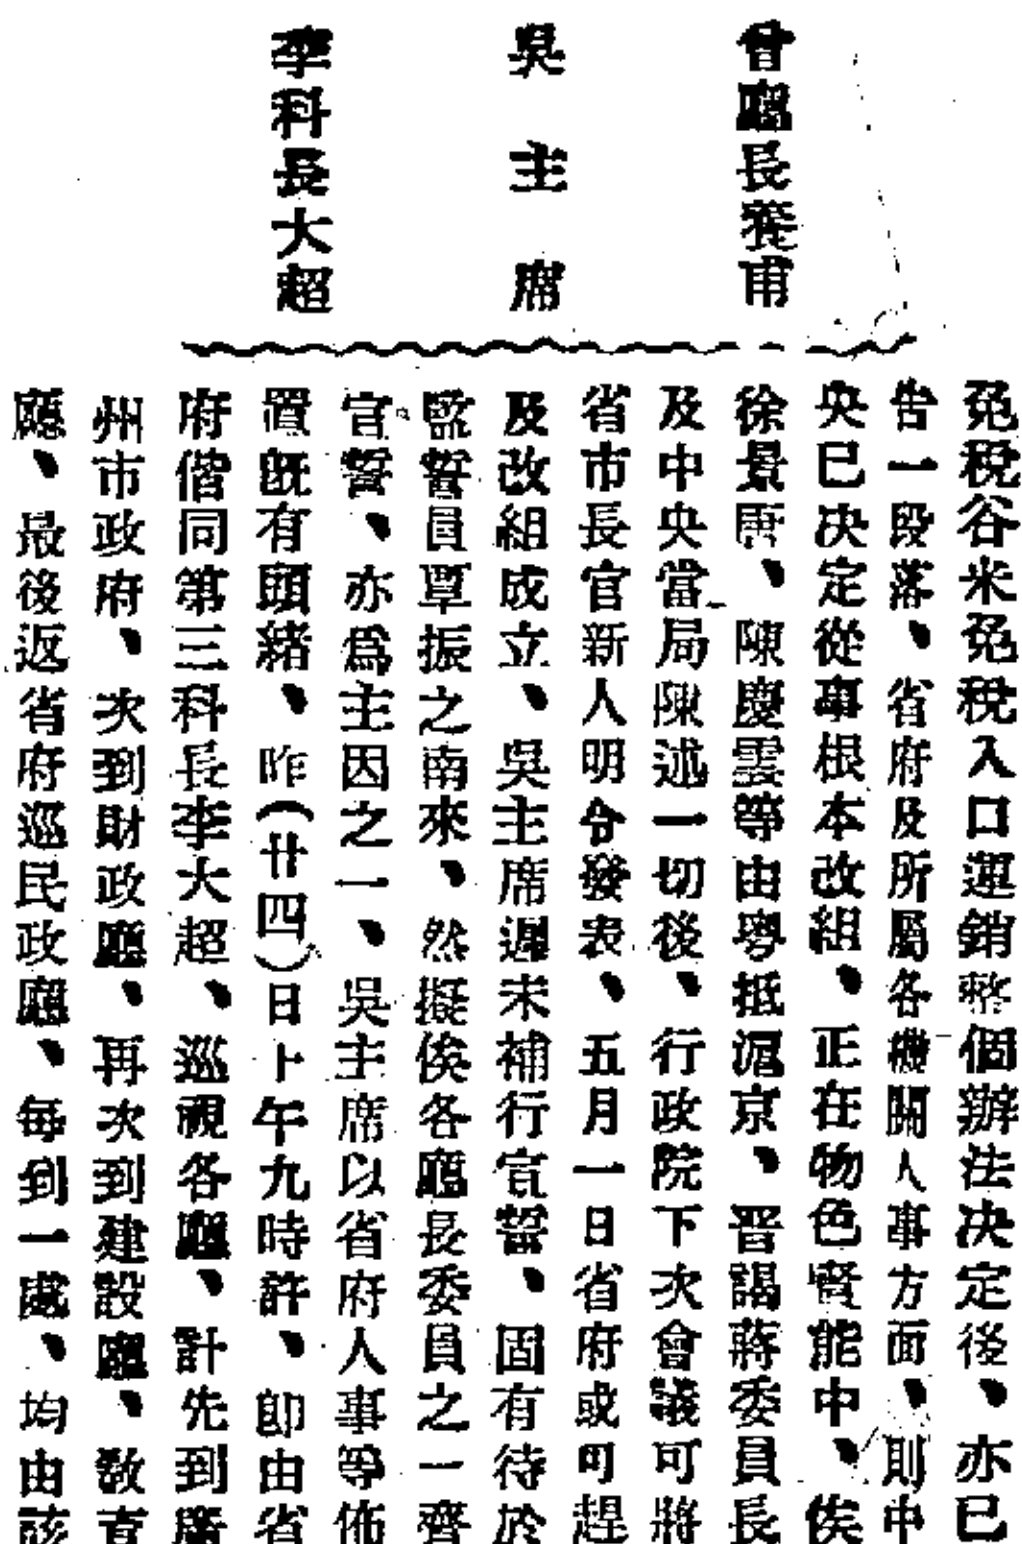 曾廳長養甫
吳主席
李科長大超
免稅谷米免稅入口運銷整個辦法决定後、亦已
告一段落、省府及所屬各機關人事方面、則中
央已决定從事根本改組、正在物色賢能中、俟
徐景唐、陳慶雲等由粵抵滬京、晋謁蔣委員長
及中央當局陳述一切後、行政院下次會議可將
省市長官新人明令發表、五月一日省府或可趕
及改組成立、吳主席遲未補行宣誓、固有待於
監誓員覃振之南來、然擬俟各廳長委員之一齊
官誓、亦爲主因之一、吳主席以省府人事等佈
置旣有頭緒、昨(廿四)日上午九時許、卽由省
府偕同第三科長李大超、巡視各廳、計先到廣
州市政府、次到財政廳、再次到建設廳、敎育
廳、最後返省府巡民政廳、每到一處、均由該